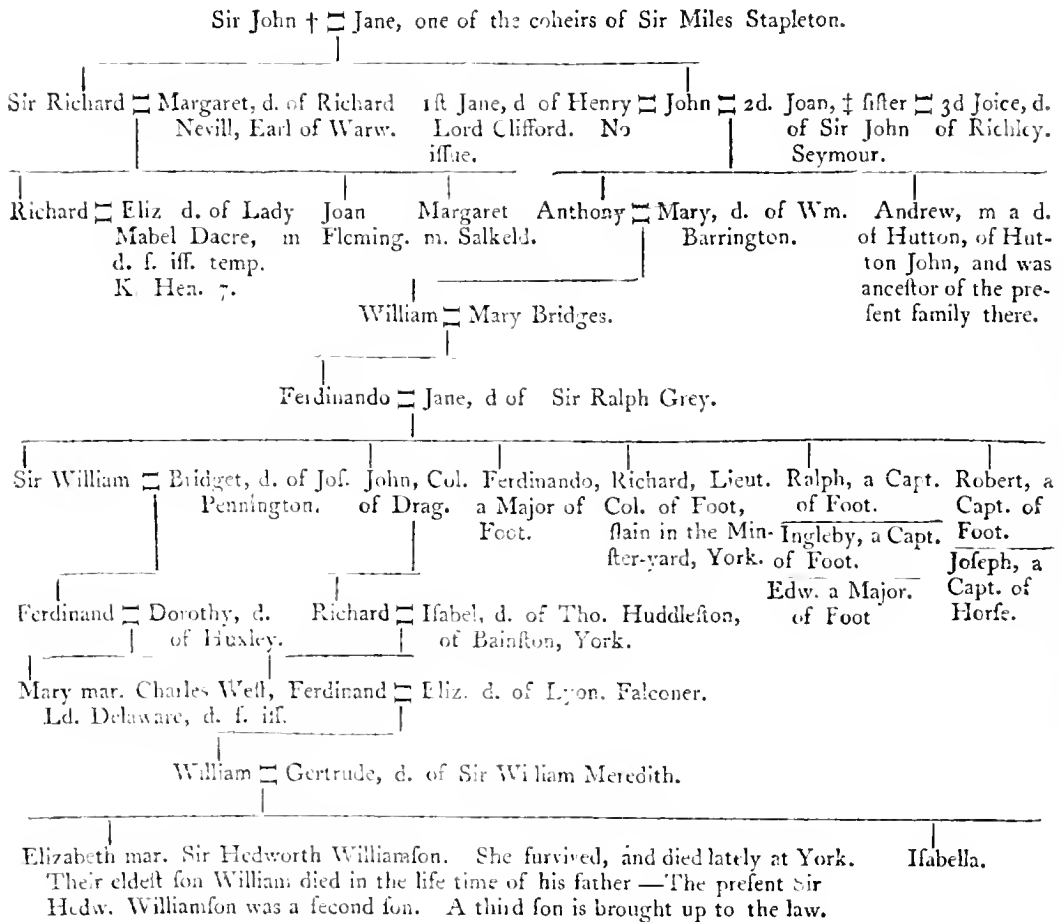 Sir John † = Jane, one of the coheirs of Sir Miles Stapleton.
Sir Richard = Margaret, d. of Richard Nevill, Earl of Warw.
1ſt Jane, d of Henry Lord Clifford. No iſſue. = John = 2d. Joan, ‡ ſiſter of Sir John Seymour. = 3d Joice, d. of Richley.
Richard = Eliz d. of Lady Mabel Dacre, d. ſ. iſſ. temp. K. Hen. 7.
Joan m Fleming.
Margaret m. Salkeld.
Anthony = Mary, d. of Wm. Barrington.
Andrew, m a d. of Hutton, of Hutton John, and was anceſtor of the preſent family there.
William = Mary Bridges.
Ferdinando = Jane, d of Sir Ralph Grey.
Sir William = Bridget, d. of Joſ. Pennington.
John, Col. of Drag.
Ferdinando, a Major of Foot.
Richard, Lieut. Col. of Foot, ſlain in the Minſter-yard, York.
Ralph, a Capt. of Foot.
Ingleby, a Capt. of Foot.
Edw. a Major. of Foot
Robert, a Capt. of Foot.
Joſeph, a Capt. of Horſe.
Ferdinand = Dorothy, d. of Huxley.
Richard = Iſabel, d. of Tho. Huddleſton, of Bainſton, York.
Mary mar. Charles Weſt, Ld. Delaware, d. ſ. iſſ.
Ferdinand = Eliz. d. of Lyon. Falconer.
William = Gertrude, d. of Sir William Meredith.
Elizabeth mar. Sir Hedworth Williamſon. She ſurvived, and died lately at York.
Their eldeſt ſon William died in the life time of his father —The preſent Sir
Hedw. Williamſon was a ſecond ſon. A third ſon is brought up to the law.
Iſabella.